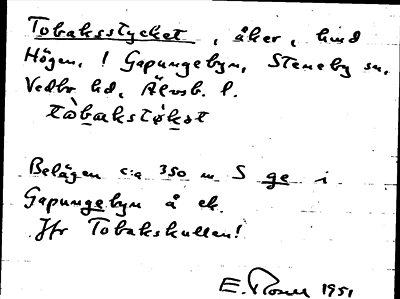 Tobaksstycket, åker, hmd
Högen, ! Gapungebyn, Steneby sn,
Vedbo hd, Älvsb. l.
tòbakstøkət
Belägen c:a 350 m S ge i
Gapungebyn å ek.
Jfr Tobakskullen!
E. Rosell 1951